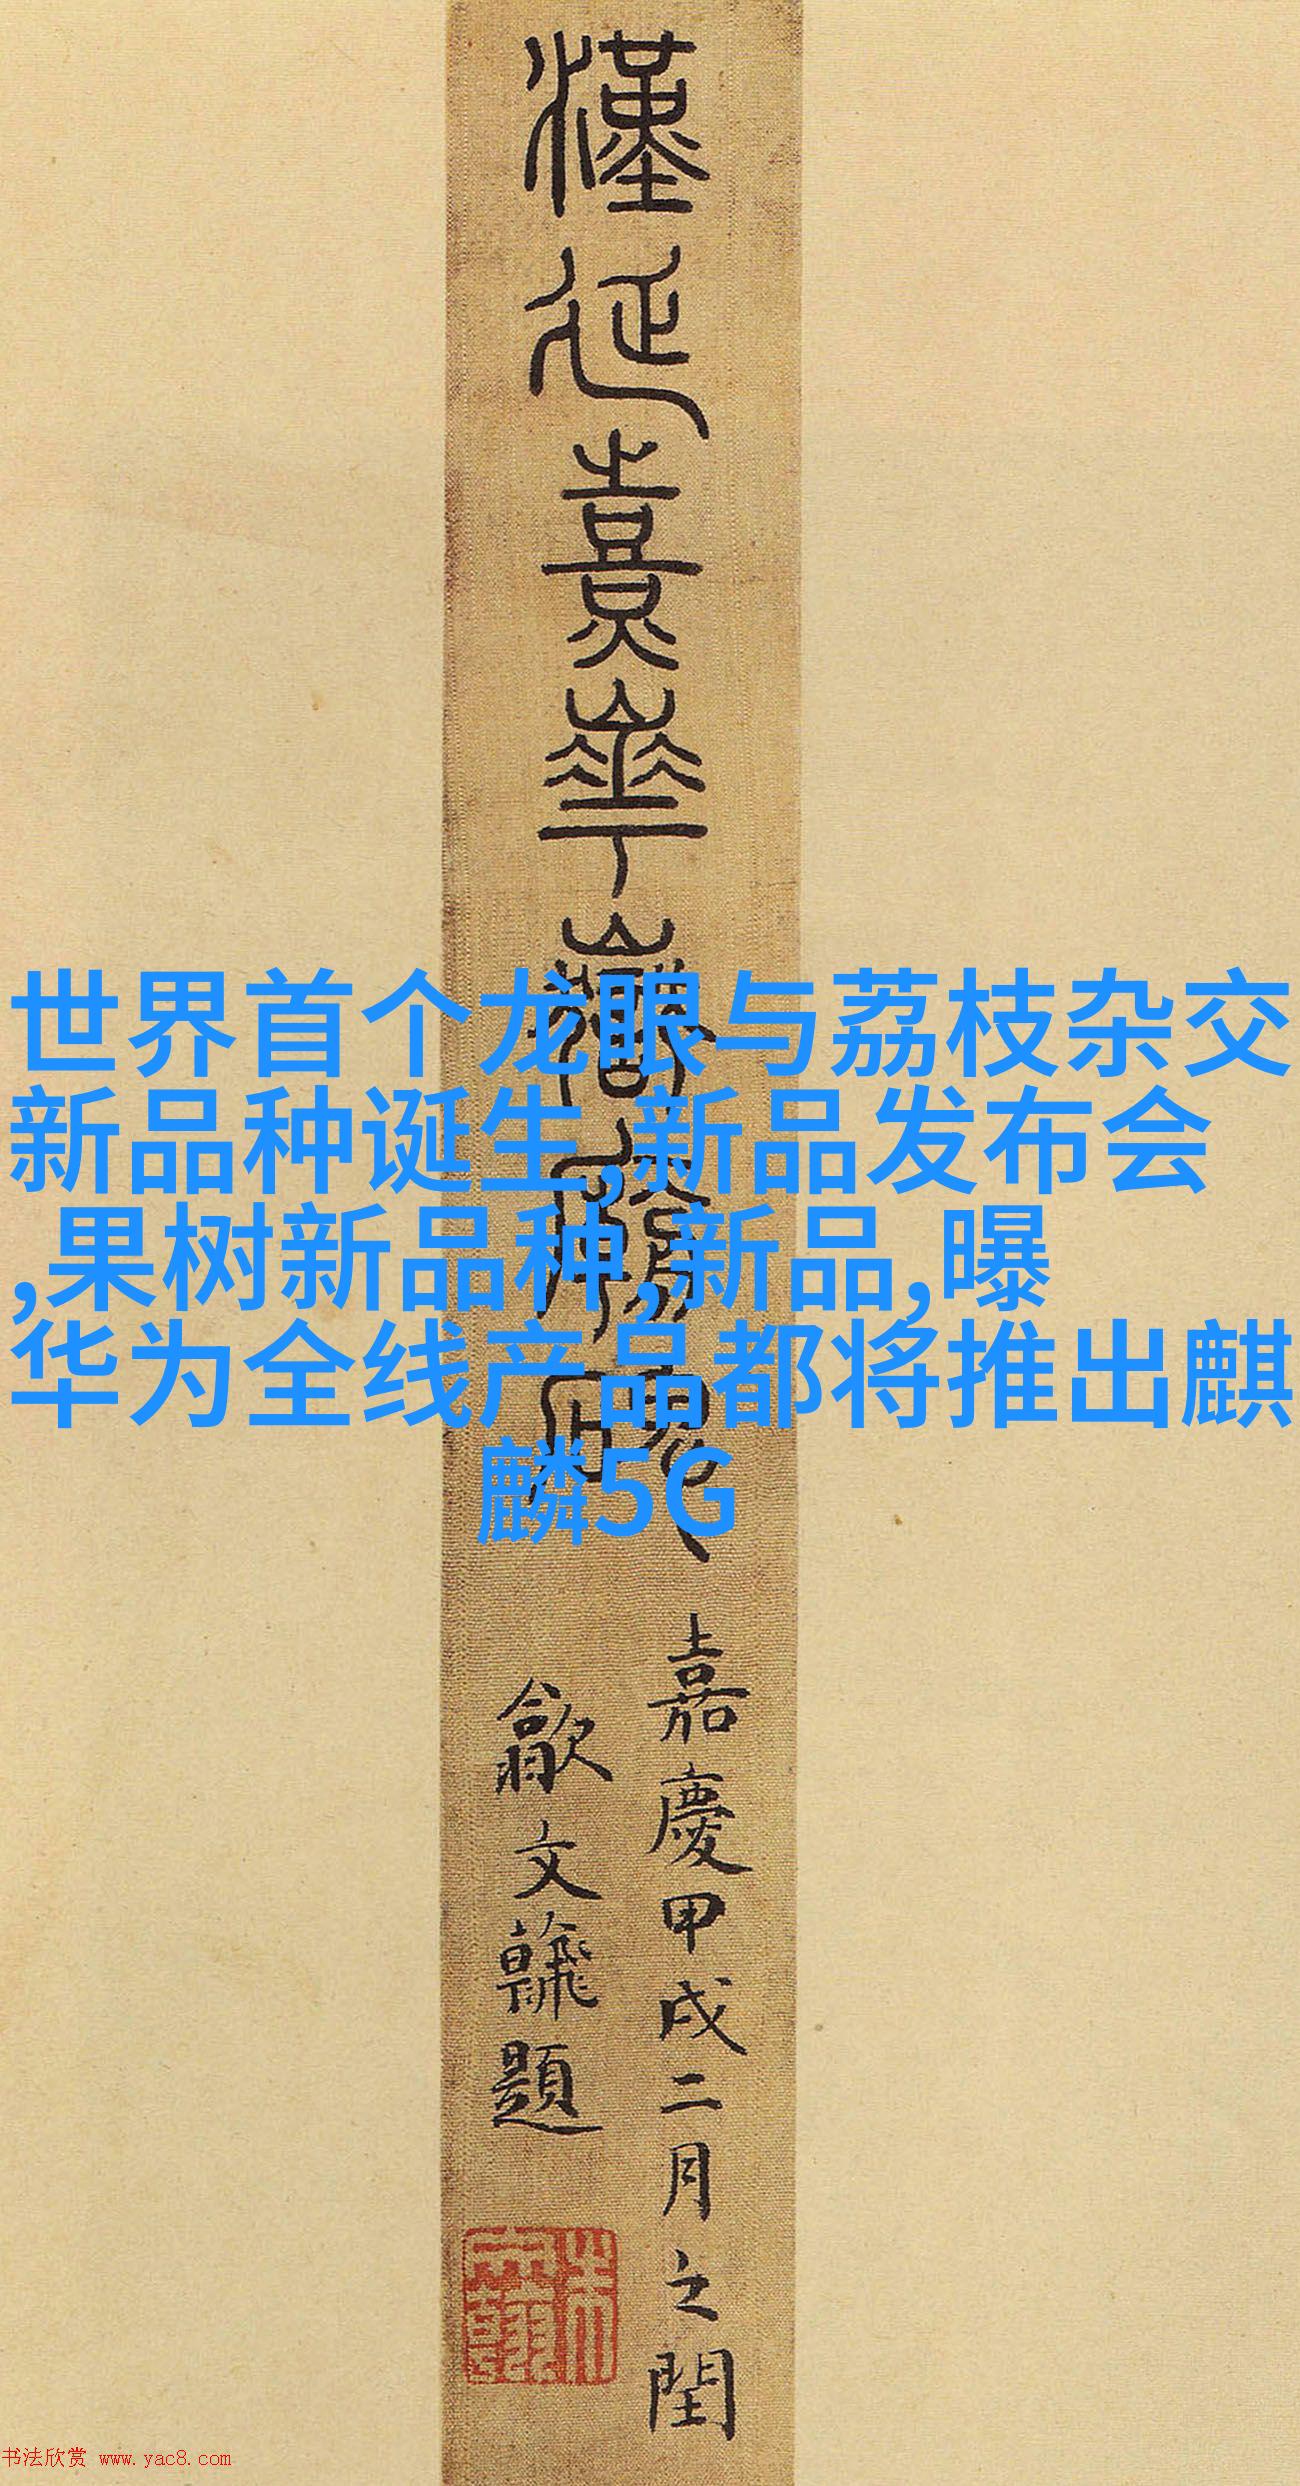 漢延熹華嶽
世界首个龙眼与荔枝杂交
新品种诞生,新品发布会
,果树新品种,新品,曝
华为全线产品都将推出麒
麟5G
嘉慶甲戌二月之閏
歙文
題
书法欣赏 www.yac8.com